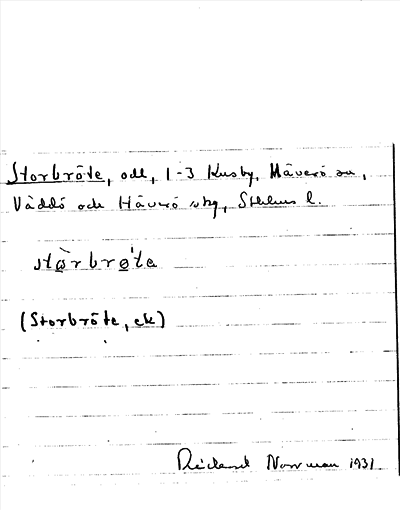 Storbröte, odl, 1-3 Kusby, Häverö sn,
Väddö och Häverö skg, Sthlms l.
stɷ̀rbrø̀ta
(Storbröte, ek)
Rickard Norrman 1931